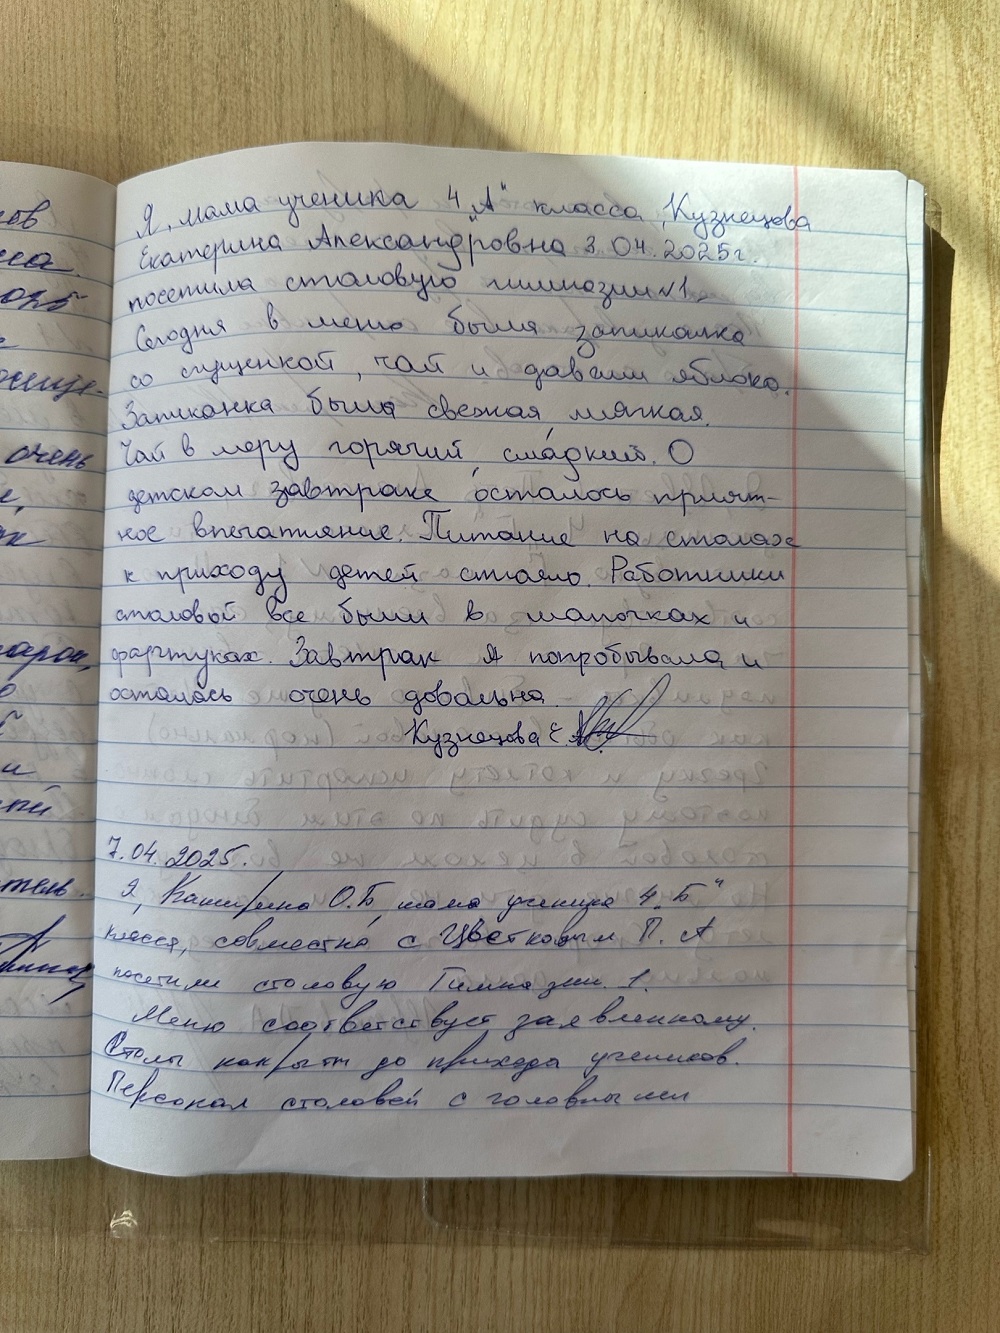 Я, мама ученика 4 „А" класса, Кузнецова
Екатерина Александровна 3.04.2025г.
посетила столовую гимназии №1.
Сегодня в меню была запиканка
со сгущенкой, чай и давали яблоко.
Запиканка была свежая, мягкая.
Чай в меру горячий, сладкий. О
детском завтраке осталось прият-
ное впечатление. Питание на столах
к приходу детей стояло. Работники
столовой все были в шапочках и
фартуках. Завтрак я попробывала и
осталась очень довольна.
Кузнецова Е.А.
7.04.2025.
Я, Каширина О.Б, мама ученика 4 „Б"
класса, совместно с Цветковым П. А
посетили столовую Гимназии 1.
Меню соответствует заявленному.
Столы накрыты до прихода учеников.
Персонал столовой с головными
очень